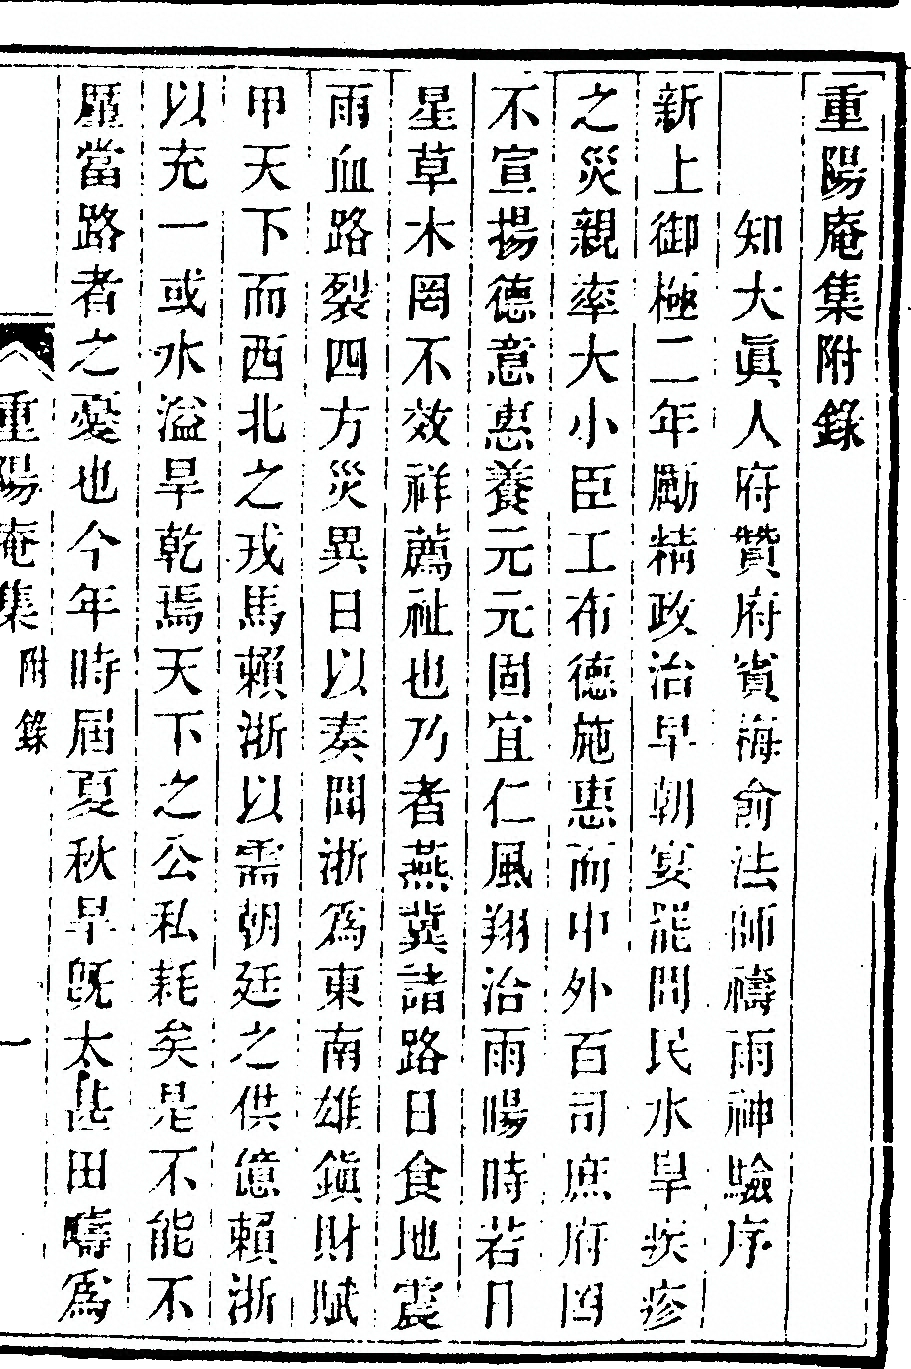 重陽庵集附錄
知大眞人府贊府賓梅俞法師禱雨神驗序
新上御極二年勵精政治早朝宴罷問民水旱疾疹
之災親率大小臣工布德施惠而中外百司庶府罔
不宣揚德意惠養元元固宜仁風翔洽雨暘時若日
星草木罔不效祥薦祉也乃者燕冀諸路日食地震
雨血路裂四方災異日以奏聞浙爲東南雄鎭財賦
甲天下而西北之戎馬賴浙以需朝廷之供億賴浙
以充一或水溢旱乾焉天下之公私耗矣是不能不
厪當路者之憂也今年時屆夏秋旱旣太甚田疇爲
重陽庵集 附錄 一